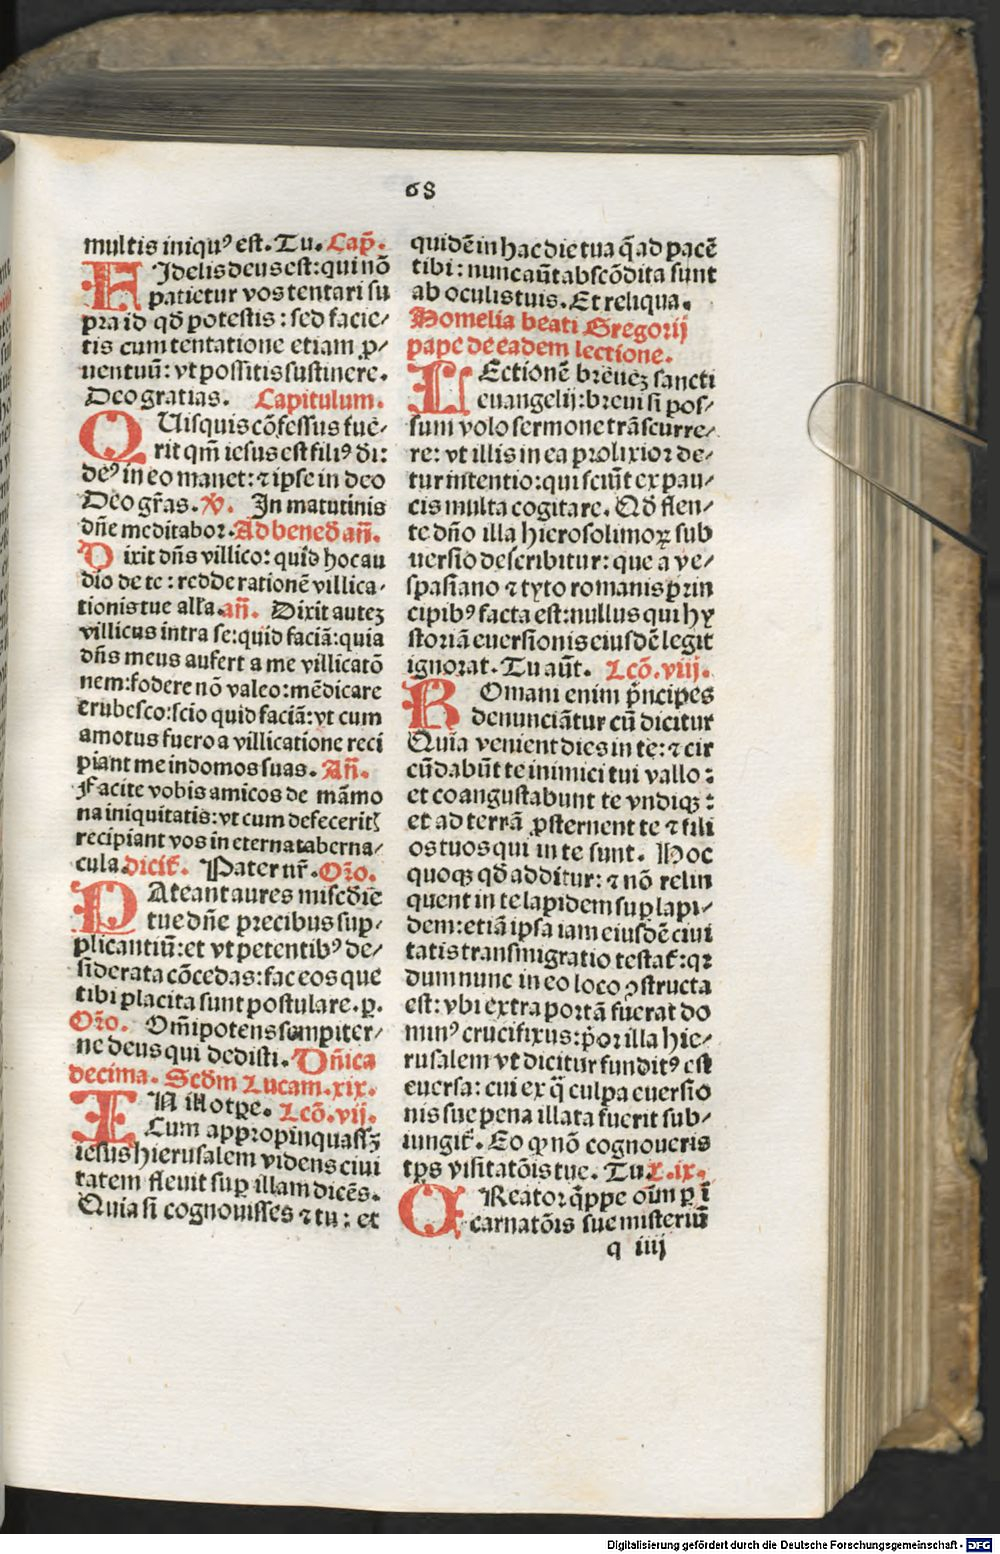 68
multis iniquꝰ est. Tu. Cap̃.
FIdelis deus est: qui nō
patietur vos tentari su
pra id qd̃ potestis: sed facie⸗
tis cum tentatione etiam ꝓ⸗
uentuū: vt possitis sustinere.
Deo gratias. Capitulum.
QUisquis cōfessus fue⸗
rit qm̃ iesus est filiꝰ di:
deꝰ in eo manet: ⁊ ipse in deo
Deo gr̃as. ℣. In matutinis
dñe meditabor. Ad bened̃ añ.
Dixit dñs villico: quid hoc au
dio de te: redde rationē villica⸗
tionis tue alľa. añ. Dixit auteꝫ
villicus intra se: quid faciā: quia
dñs meus aufert a me villicatō
nem: fodere nō valeo: mēdicare
erubesco: scio quid faciā: vt cum
amotus fuero a villicatione reci
piant me in domos suas. Añ.
Facite vobis amicos de māmo
na iniquitatis: vt cum defeceritꝭ
recipiant vos in eterna taberna⸗
cula. dicit̃. Pater nr̃. Orõ.
PAteant aures misc̃die
tue dñe precibus sup⸗
plicantiū: et vt petentibꝰ de⸗
siderata cōcedas: fac eos que
tibi placita sunt postulare. p.
Orõ. Om̃ipotens sempiter⸗
ne deus qui dedisti. Dñica
decima. Sed̃m Lucam. xix.
IN illo tꝑe. Lcō. vij.
Cum appropinquassꝫ
iesus hierusalem videns ciui
tatem fleuit suꝑ illam dicēs.
Quia si cognouisses ⁊ tu: et
quidē in hac die tua q̃ ad pacē
tibi: nunc aūt abscōdita sunt
ab oculis tuis. Et reliqua.
Homelia beati Gregorij
pape de eadem lectione.
LEctionē breueꝫ sancti
euangelij: breui si pos⸗
sum volo sermone trāscurre⸗
re: vt illis in ea prolixior de⸗
tur intentio: qui sciūt ex pau⸗
cis multa cogitare. Qd̃ flen⸗
te dño illa hierosolimoꝝ sub
uersio describitur: que a ve⸗
spasiano ⁊ tyto romanis prin
cipibꝰ facta est: nullus qui hy
storiā euersionis eiusdē legit
ignorat. Tu aūt. Lcō. viij.
ROmani enim p̃ncipes
denunciātur cū dicitur
Quia venient dies in te: ⁊ cir
cūdabūt te inimici tui vallo:
et coangustabunt te vndiqꝫ:
et ad terrā ꝓsternent te ⁊ fili
os tuos qui in te sunt. Hoc
quoqꝫ qd̃ additur: ⁊ nō relin
quent in te lapidem suꝑ lapi⸗
dem: etiā ipsa iam eiusdē ciui
tatis transmigratio testat̃: qꝛ
dum nunc in eo loco ꝯstructa
est: vbi extra portā fuerat do
minꝰ crucifixus: p̃or illa hie⸗
rusalem vt dicitur funditꝰ est
euersa: cui ex q̃ culpa euersio
nis sue pena illata fuerit sub⸗
iungit̃. Eo ꝙ nō cognoueris
tp̃s visitatōis tue. Tu. Lc. ix.
CReator q̃ppe oīm ꝑ ī
carnatōis sue misteriū
q iiij
Digitalisierung gefördert durch die Deutsche Forschungsgemeinschaft - DFG